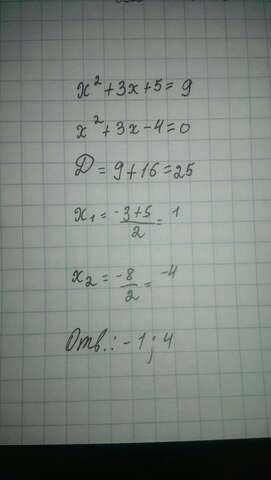 x² + 3x + 5 = 9
x² + 3x - 4 = 0
D = 9 + 16 = 25
x₁ = \frac{-3+5}{2} = 1
x₂ = \frac{-8}{2} = -4
Отв.: - 1 ; 4